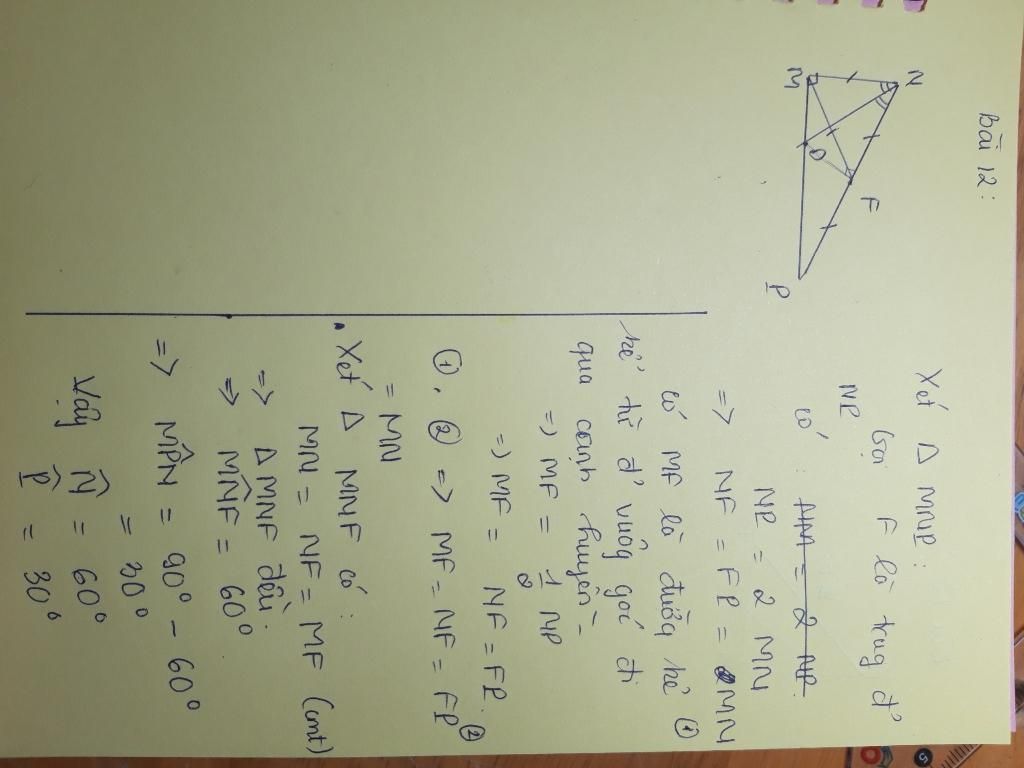 Bài 12:
M
N
O
F
P
Xét Δ MNP:
Gọi F là trug đ'
NP
có: NM = 2 NP.
NP = 2 MN
=> NF = FP = MN ①
có MF là đường kẻ
kẻ từ đ' vuôg góc đi
qua cạnh huyền.
=> MF = 1/2 NP
=> MF = NF = FP. ②
①, ② => MF = NF = FP
= MN
Xét Δ MNF có:
MN = NF = MF (cmt)
=> Δ MNF đều.
=> MN̂F = 60°
=> MP̂N = 90° - 60°
= 30°
Vậy N̂ = 60°
P̂ = 30°